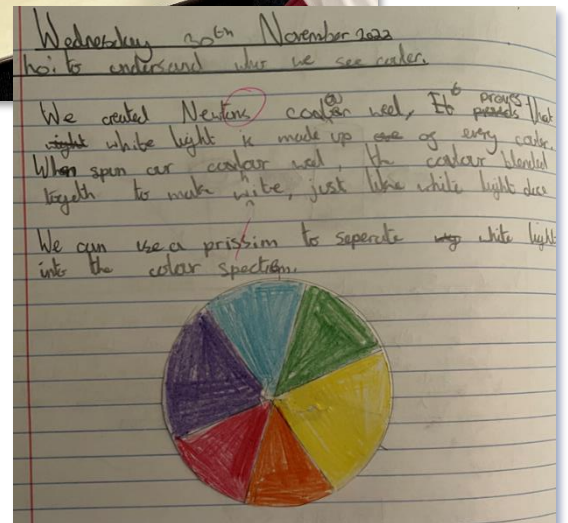 Wednesday 30th November 2022
to understand why we see
We created Newtons weel, It proves that
white light is made up of every
When spun our weel, the blended
togeth to make white, just like white light does
We can use a prissim to seperate white light
into the colour spectrem.